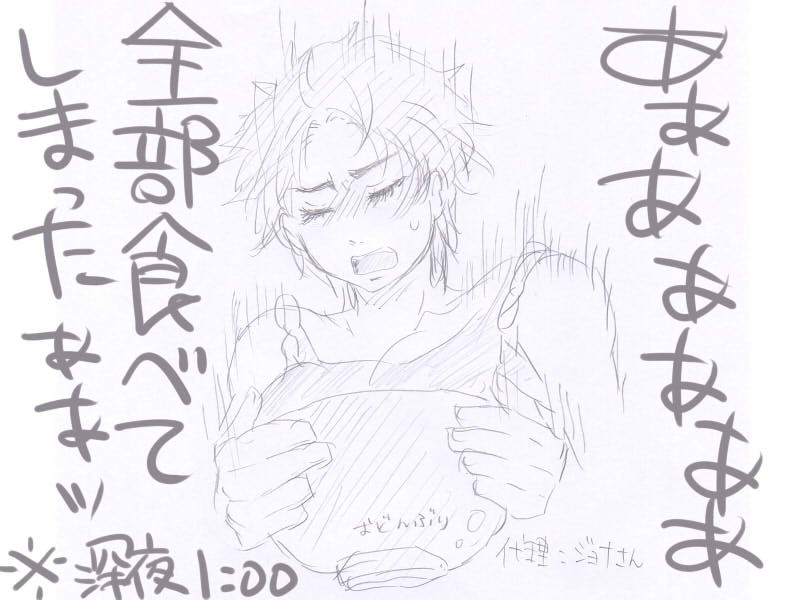 あぁあぁぁああ
全部食べて
しまったぁあッ
おどんぶり
代理：ジョナさん
※深夜1:00